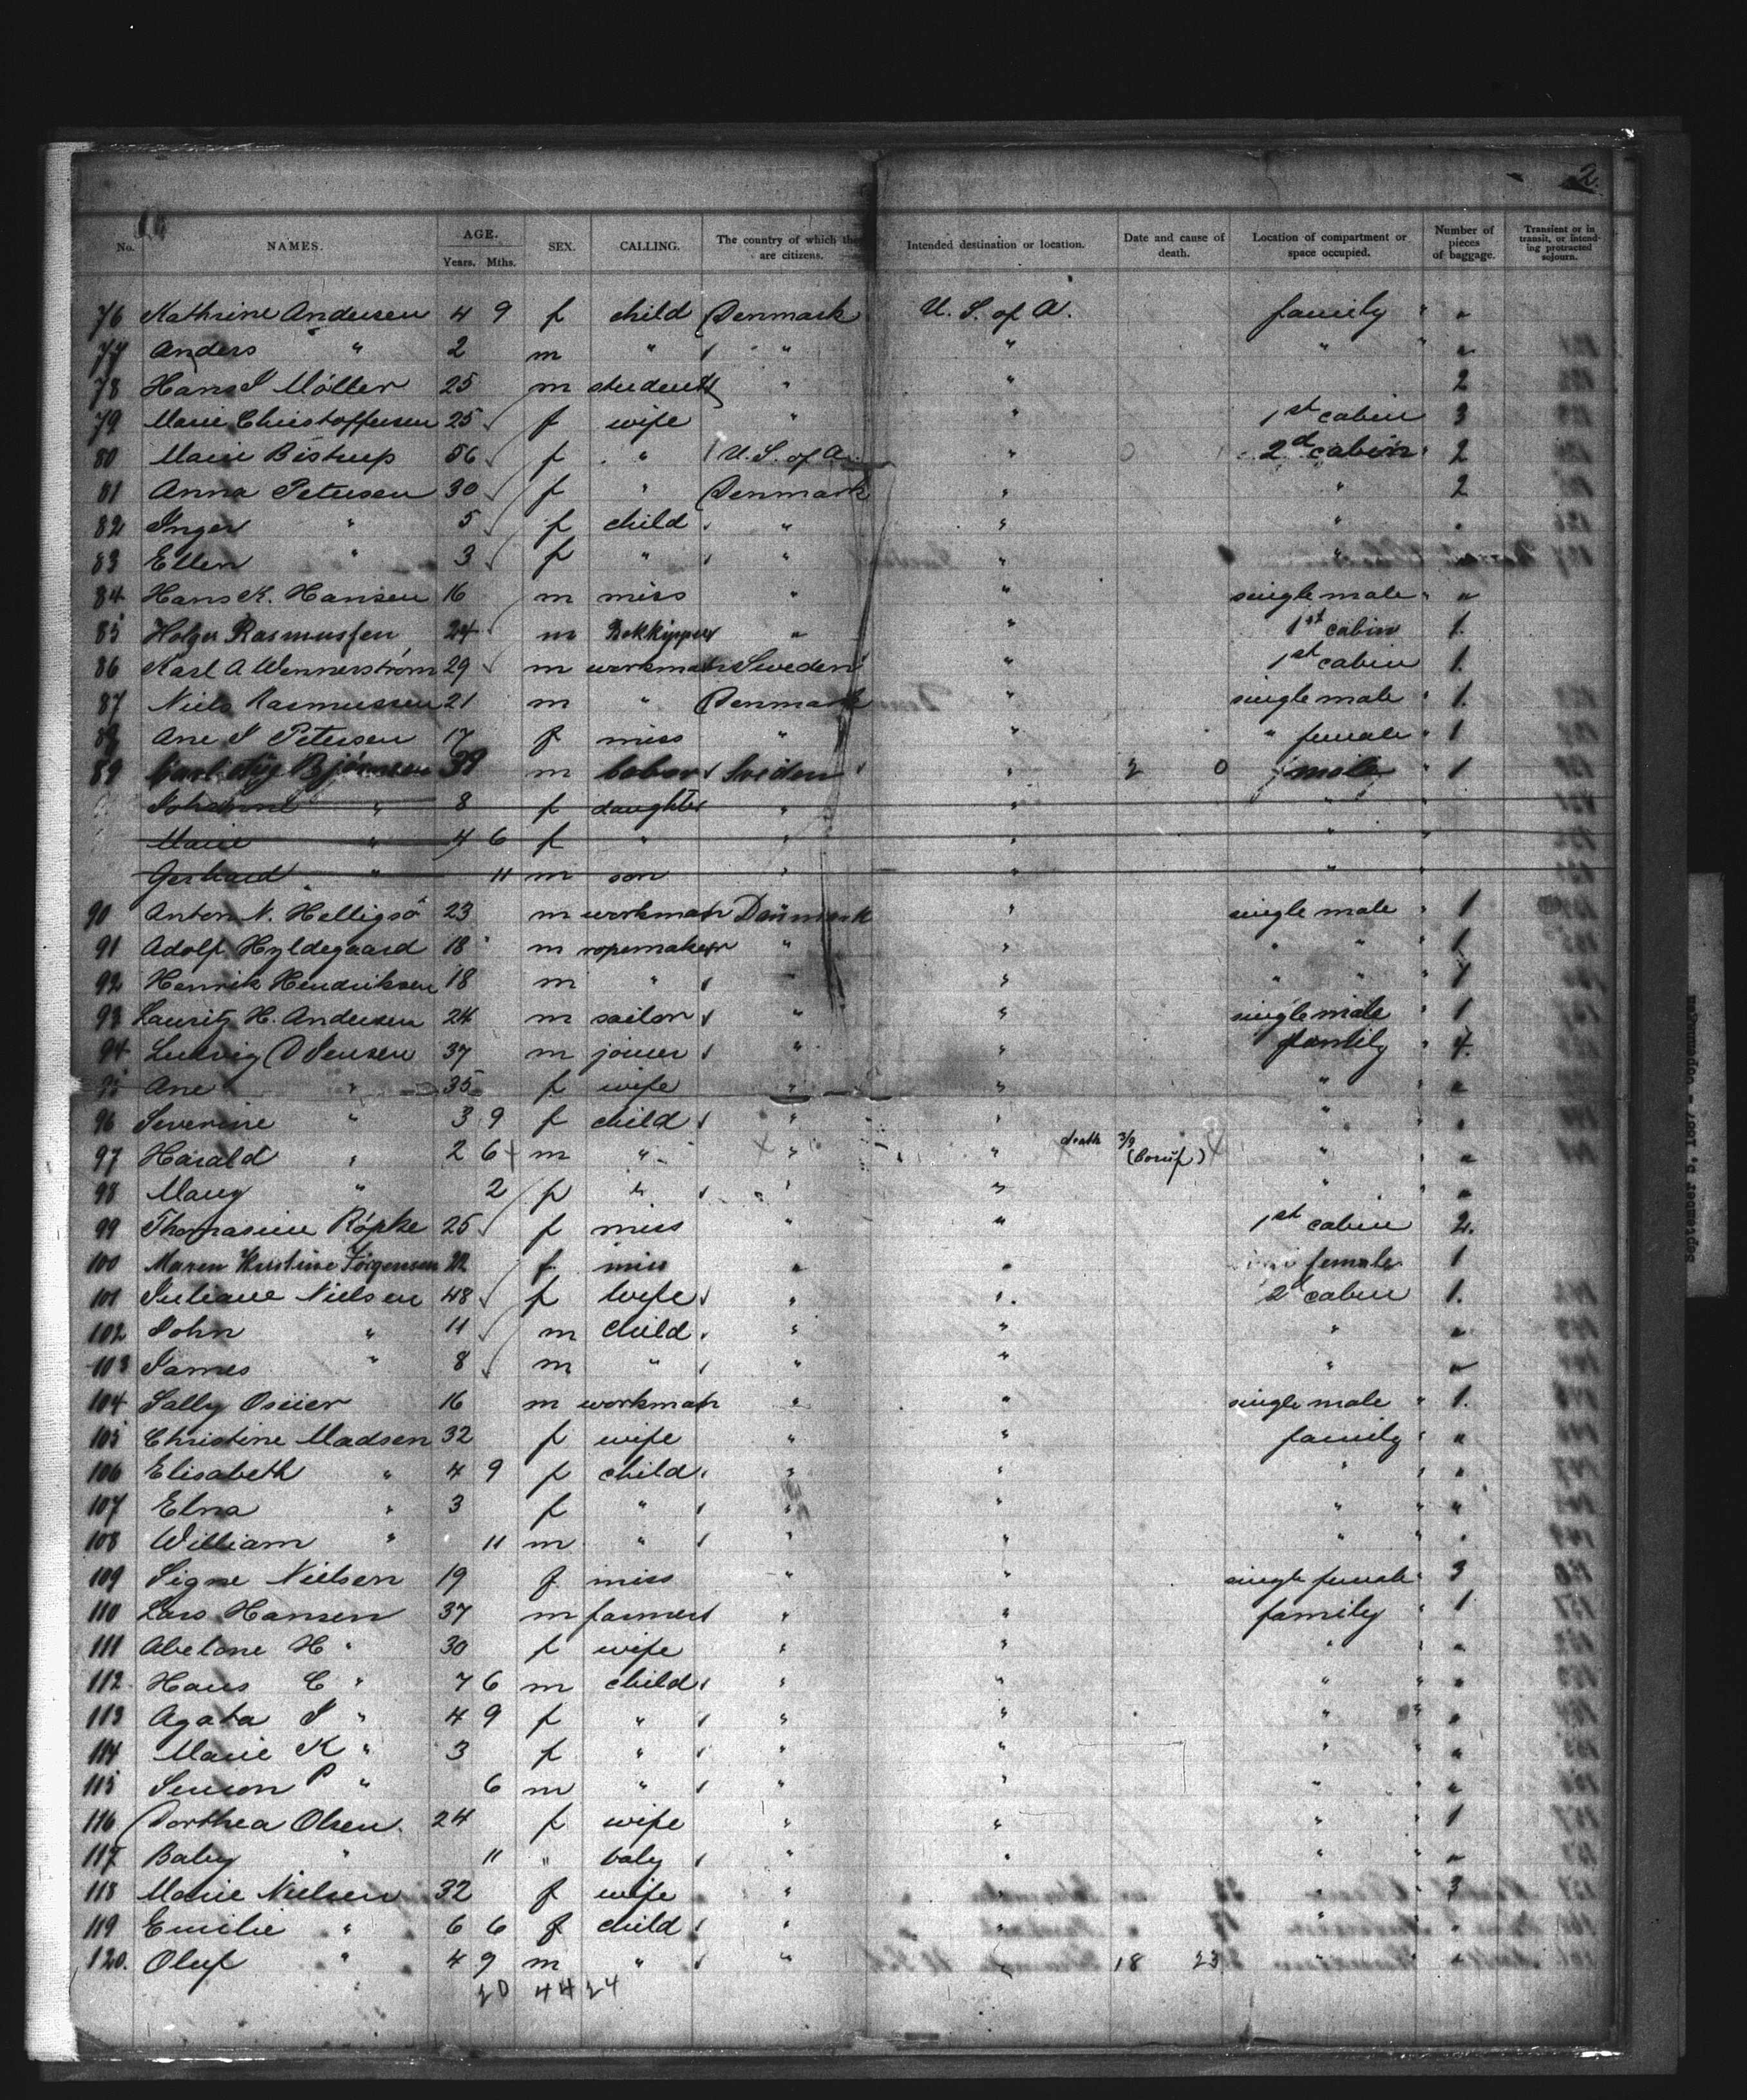 2.
No. NAMES. AGE. Years. Mths. SEX. CALLING. The country of which the are citizens. Intended destination or location. Date and cause of death. Location of compartment or space occupied. Number of pieces of baggage. Transient or in transit, or intending protracted sojourn.
76 Kathrine Andersen 4 9 f child Denmark U. S. of A. family " "
77 Anders " 2 m " " " " " "
78 Hans J Möller 25 m student " " 2
79 Marie Christoffersen 25 f wife " " 1st cabin 3
80 Marie Bistrup 56 f " U. S. of A. " 2d cabin 2
81 Anna Petersen 30 f " Denmark " " 2
82 Inger " 5 f child " " " "
83 Ellen " 3 f " " " "
84 Hans K. Hansen 16 m miss " " single male " "
85 Holger Rasmussen 24 m Bokkipper " " 1st cabin 1.
86 Karl A Wennerström 29 m workman Sweden " 1st cabin 1.
87 Niels Rasmussen 21 m " Denmark " single male " 1.
88 Ane J Petersen 17 f miss " " " female " 1
89 Carl Aug Björnsen 39 m labor Sveden " 2 0 male " 1
Johanne " 8 f daughter " " " "
Marie " 4 6 f " " " " "
Gerhard " 11 m son " " " "
90 Anton N. Helligsö 23 m workman Danmark " single male " 1
91 Adolf Hyldegaard 18 m ropemaker " " " " " 1
92 Henrik Hendriksen 18 m " " " " " 1
93 Lauritz H. Andersen 24 m sailor " " single male " 1
94 Ludvig D Jensen 37 m joiner " " family " 4.
95 Ane " 35 f wife " " " " "
96 Severine " 3 9 f child " " " "
97 Harald " 2 6 m " " " death 3/9 (Croup) " " "
98 Mary " 2 f " " " " "
99 Thomasine Röpke 25 f miss " " 1st cabin 2.
100 Maren Kirstine Jörgensen 22 f miss " " female 1
101 Juliane Nielsen 48 f wife " " 2d cabin 1.
102 John " 11 m child " " " "
103 James " 8 m " " " " "
104 Sally Osiier 16 m workman " " single male " 1.
105 Christine Madsen 32 f wife " " family " "
106 Elisabeth " 4 9 f child " " " " "
107 Elna " 3 f " " " " " "
108 William " 11 m " " " " " "
109 Signe Nielsen 19 f miss " " single female " 3
110 Lars Hansen 37 m farmer " " family " 1
111 Abelone H " 30 f wife " " " " "
112. Hans C " 7 6 m child " " " " "
113 Agata J " 4 9 f " " " " " "
114 Marie K " 3 f " " " " " "
115 Simon P " 6 m " " " " " "
116 Dorthea Olsen 24 f wife " " " " 1
117 Baby " 11 " baby " " " " "
118 Marie Nielsen 32 f wife " " " 3
119 Emilie " 6 6 f child " " " "
120. Oluf " 4 9 m " " " 18 23 " " "
20 44 24
September 5, 1887 - Copenhagen